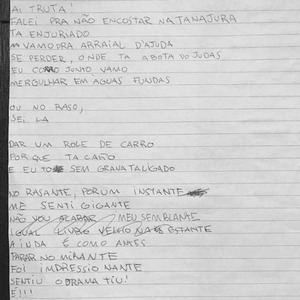 AI, TRUTA!
FALEI PRA NÃO ENCOSTAR NA TANAJURA
TA ENJURIADO
VAMO PRA ARRAIAL D'AJUDA
SE PERDER, ONDE TA A BOTA DO JUDAS
EU CORRO JUNTO VAMO
MERGULHAR EM AGUAS FUNDAS
OU NO RASO,
SEI LA
DAR UM ROLE DE CARRO
PORQUE TA CARO
E EU TO SEM GRANA TALIGADO
NO RASANTE, POR UM INSTANTE
ME SENTI GIGANTE
NÃO VOU ACABAR MEU SEMBLANTE
IGUAL LIVRO VELHO NA ESTANTE
AINDA É COMO ANTES
PARAR NO MIRANTE
FOI IMPRESSIONANTE
SENTIU O DRAMA TIU!
É!!!